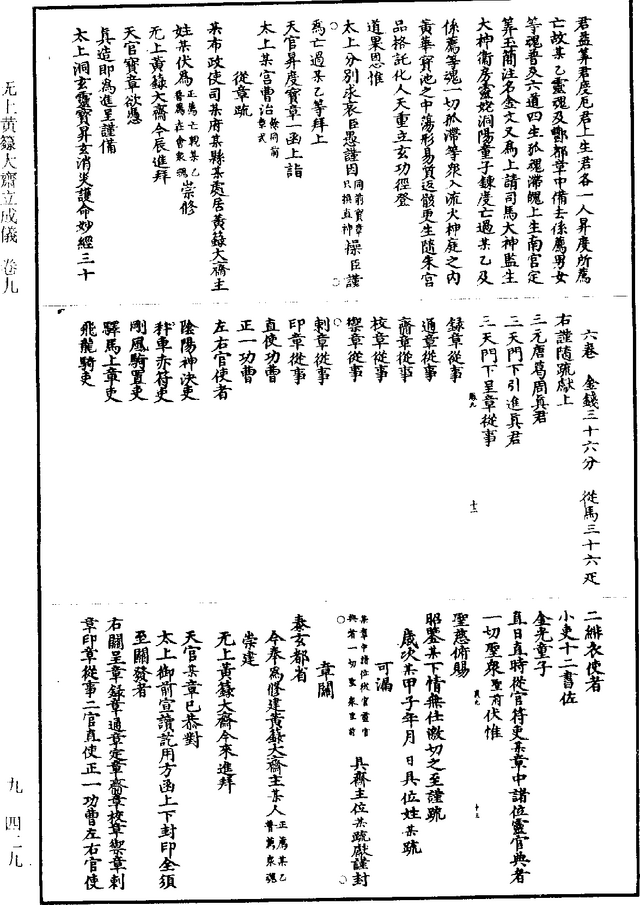 君益筭君度厄君上生君各一人昇度所薦
亡故某乙靈魂及酆都章中備去係薦男女
等魂普及六道四生孤魂滯魄上生南宮定
筭玉簡注名金文又爲上請司馬大神監生
大神衛房靈妃洞陽童子鍊度亡過某乙及
係薦等魂一切孤滯等衆入流火神庭之内
黃華寶池之中蕩形易質返骸更生隨朱宮
品格託化人天重立玄功徑登
道果恩惟
太上分別求哀臣愚謹因同前寳章只換直神操臣謹
爲亡過某乙等拜上
天官昇度寶章一函上詣
太上某宮曹治餘同前章式
從章疏
某布政使司某府某縣某處居黃籙大齋主
姓某伏爲正薦亡親某乙普薦在會衆魂崇修
无上黃籙大齋今辰進拜
天官寶章欲憑
真造即爲進呈謹備
太上洞玄靈寳昇玄消災護命妙經三十
六卷 金錢三十六分 從馬三十六疋
右謹隨疏獻上
三元唐葛周真君
三天門下引進真君
三天門下呈章從事
錄章從事
通章從事
齎章從事
校章從事
禦章從事
剌章從事
印章從事
直使功曹
正一功曹
左右官使者
陰陽神決吏
科車赤符吏
剛風騎置吏
驛馬上章吏
飛龍騎吏
二緋衣使者
小吏十二書佐
金光童子
直日直時從官符吏某章中諸位靈官典者
一切聖衆聖前伏惟
聖慈俯賜
昭鑒某下情無任激切之至謹疏
歲次某甲子年月 日具位姓某疏
可漏
某章中諸位從官靈官典者一切聖衆聖前 具齋主位某疏獻謹封
章關
泰玄都省
今奉爲修建黃籙大齋主某人正薦某乙普薦衆魂
崇建
无上黃籙大齋今來進拜
天官某章已恭對
太上御前宣讀訖用方函上下封印全須
至關發者
右關呈章錄章通章定章齎章校章禦章刺
章印章從事二官直使正一功曹左右官使
无上黃籙大齋立成儀 卷九
九 四二九